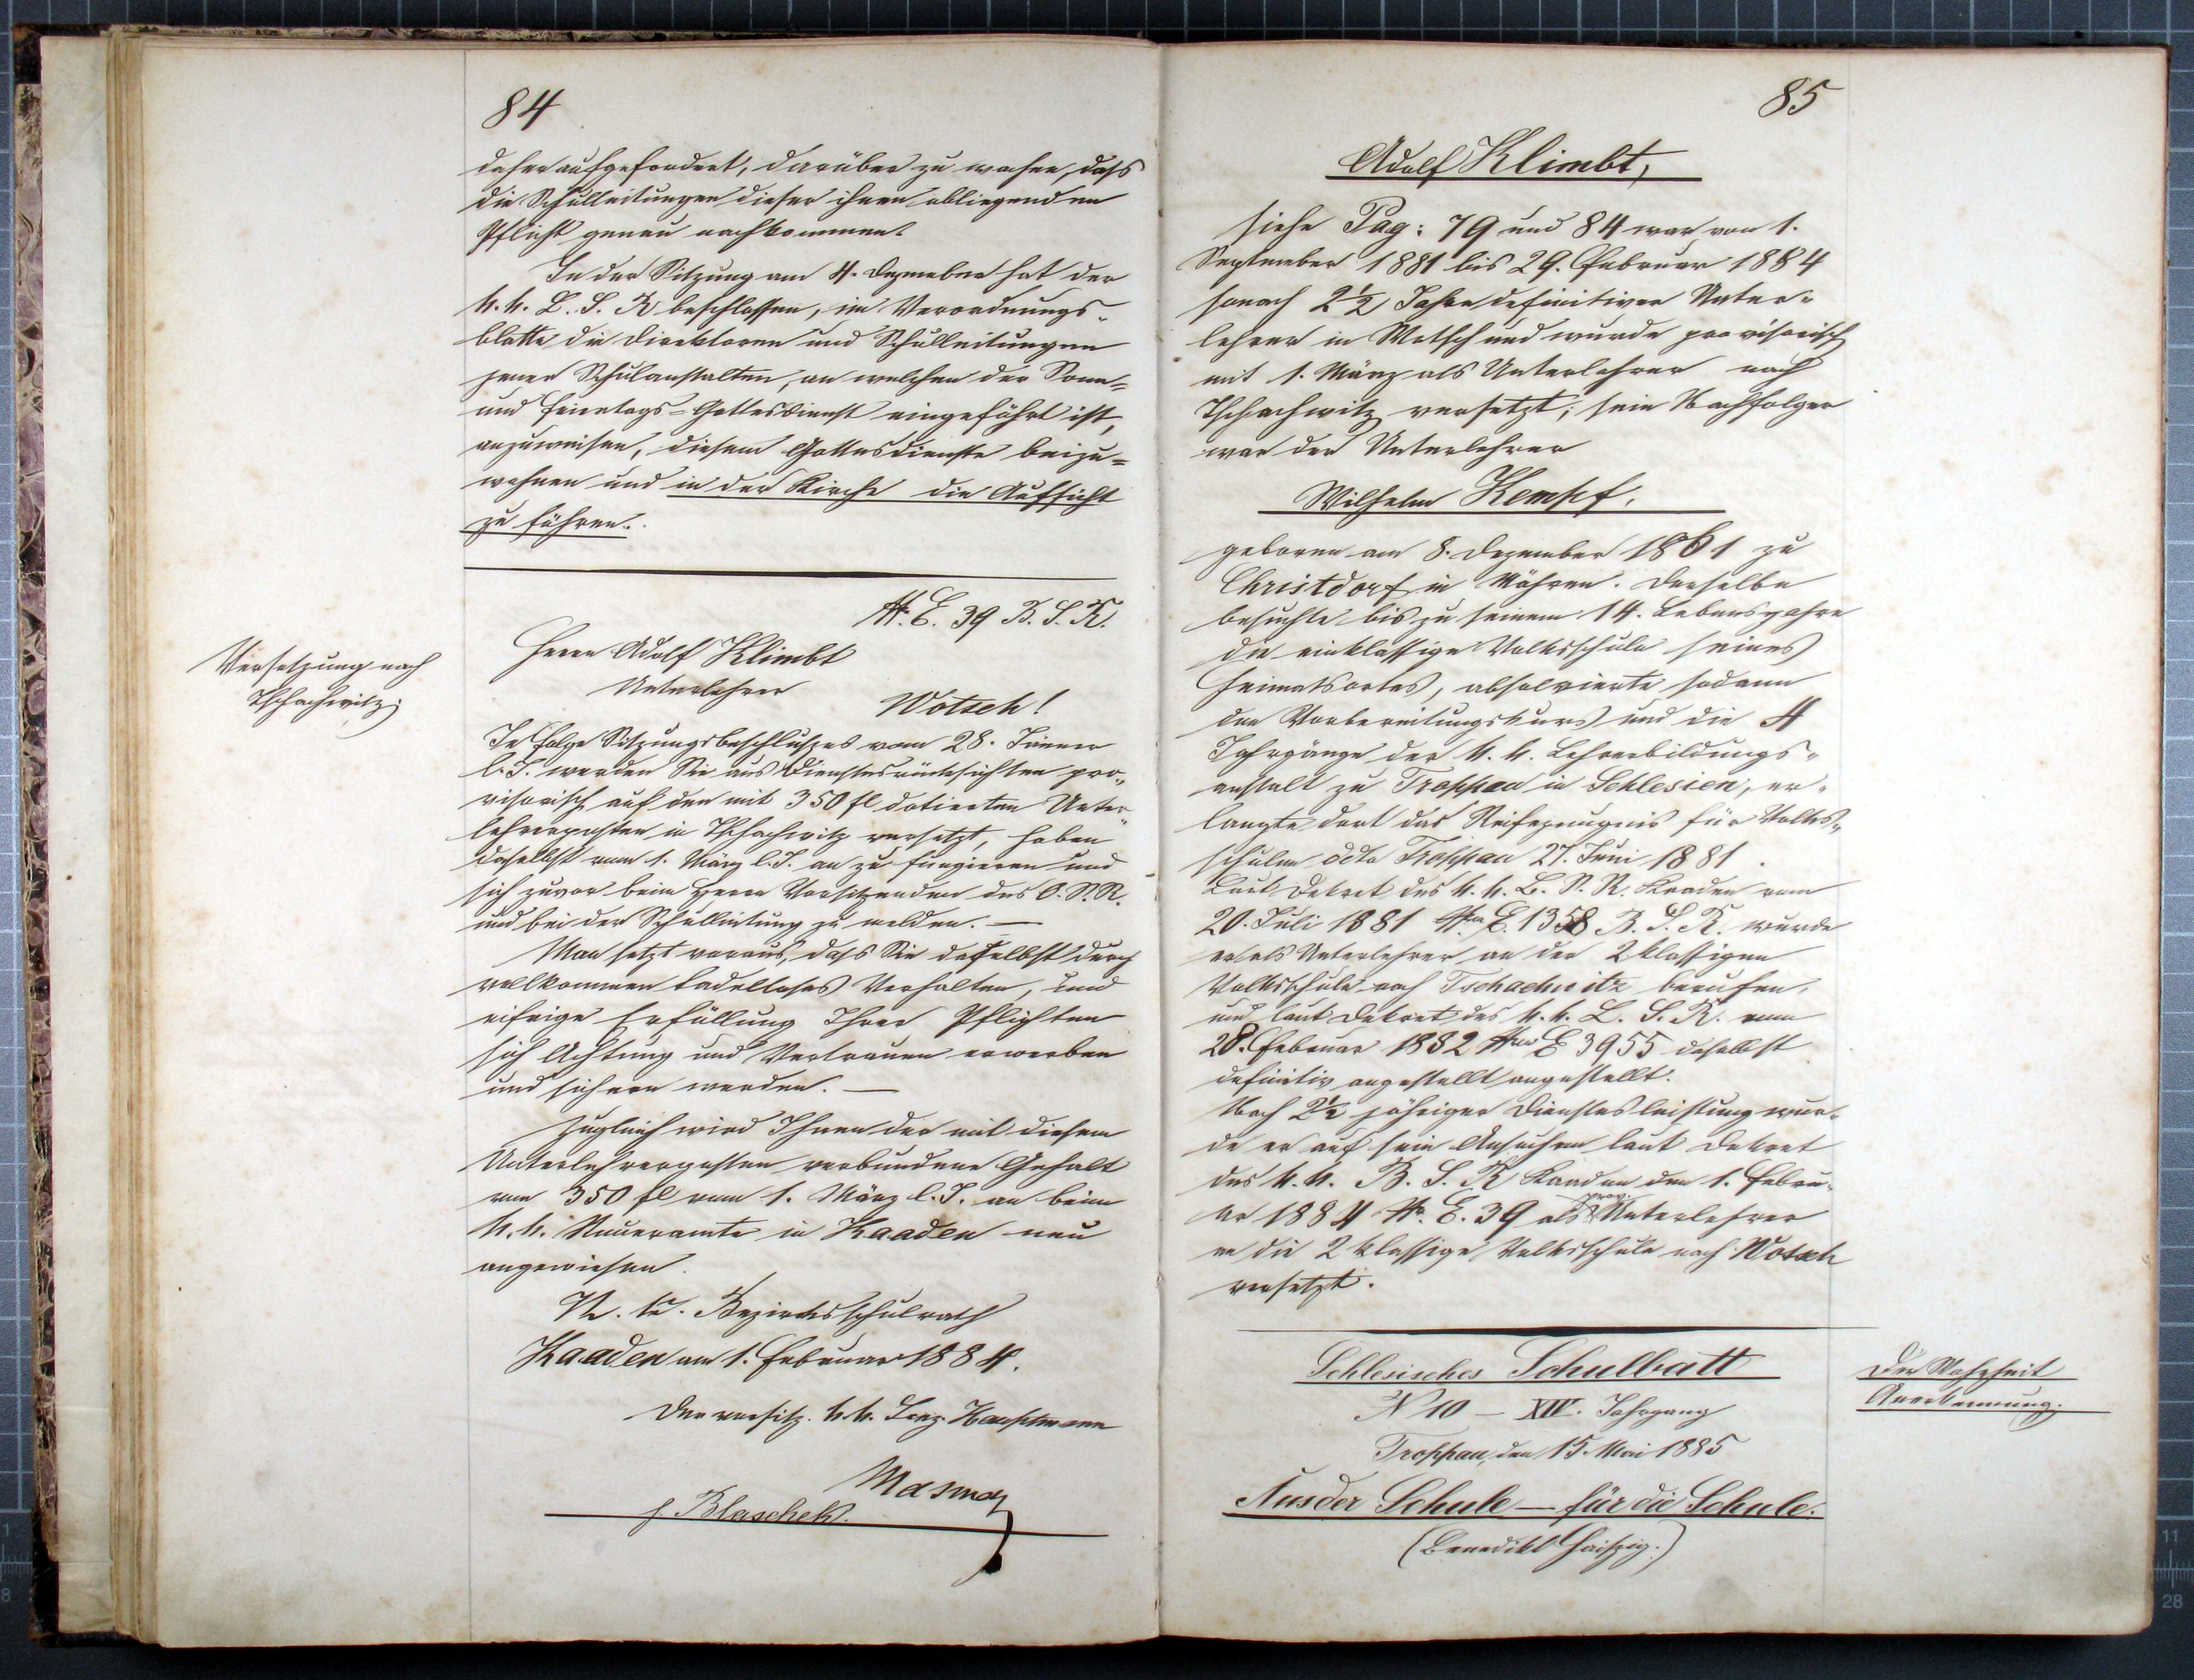 84
daher aufgefordert, darüber zu wachen, daß
die Schulleitungen dieser ihnen obliegenden
Pflicht genau nachkommen.
In der Sitzung am 4. Dezember hat der
k. k. L. S. R beschlossen, im Verordnungs-
blatte die Direktoren und Schulleitungen
jener Schulanstalten, an welchen der Sonn-
und Feiertags-Gottesdienst eingeführt ist,
anzuweisen, diesem Gottesdienste beizu-
wohnen und in der Kirche die Aufsicht
zu führen.
Nr. E. 39 B. S. R.
Versetzung nach
Tschachwitz.
Herrn Adolf Klimbt
Unterlehrer
Wotsch!
In Folge Sitzungsbeschlußes vom 28. Jänner
l. J. werden Sie aus Dienstesrücksichten pro-
visorisch auf den mit 350 fl dotierten Unter-
lehrerposten in Tschachwitz versetzt, haben
daselbst vom 1. März l. J. an zu fungieren und
sich zuvor beim Herrn Vorsitzenden des O. S. R.
und bei der Schulleitung zu melden. —
Man setzt voraus, daß Sie daselbst durch
vollkommen tadelloses Verhalten, und
eifrige Erfüllung Ihrer Pflichten
sich Achtung und Vertrauen erwerben
und sichern werden. —
Zugleich wird Ihnen der mit diesem
Unterlehrerposten verbundene Gehalt
von 350 fl vom 1. März l. J. an beim
k. k. Steueramte in Kaaden neu
angewiesen.
K. k. Bezirksschulrath
Kaaden am 1. Februar 1884.
Der vorsitz. k. k. Bez. Hauptmann
J. Blaschek.
85
Adolf Klimbt,
siehe Pag: 79 und 84 war vom 1.
September 1881 bis 29. Februar 1884
sonach 2½ Jahre definitiver Unter-
lehrer in Wotsch und wurde provisorisch
mit 1. März als Unterlehrer nach
Tschachwitz versetzt; sein Nachfolger
war der Unterlehrer
Wilhelm Kempf,
geboren am 8. Dezember 1861 zu
Christdorf in Mähren. Derselbe
besuchte bis zu seinem 14. Lebensjahre
die einklassige Volksschule seines
Heimatsortes, absolvierte sodann
den Vorbereitungskurs und die 4
Jahrgänge der k. k. Lehrerbildungs-
anstalt zu Troppau in Schlesien, er-
langte dort das Reifezeugnis für Volks-
schulen ddto Troppau 27. Juni 1881.
Laut Dekret des k. k. B. S. R. Kaaden vom
20. Juli 1881 Nro E. 1358 B. S. R. wurde
er als Unterlehrer an der 2klassigen
Volksschule nach Tschachwitz berufen,
und laut Dekret des k. k. L. S. R. vom
28. Februar 1882 Nro E 3955 daselbst
definitiv angestellt angestellt.
Nach 2½ jähriger Dienstesleistung wur-
de er auf sein Ansuchen laut Dekret
des k. k. B. S. R Kaaden den 1. Febru-
ar 1884 Nr. E. 39 als prov. Unterlehrer
an die 2klassige Volksschule nach Wotsch
versetzt.
Schlesisches Schulbatt
N 10 – XIV. Jahrgang
Troppau, den 15. Mai 1885
Der Wahrheit
Anerkennung.
Aus der Schule — für die Schule.
(Benedikt )